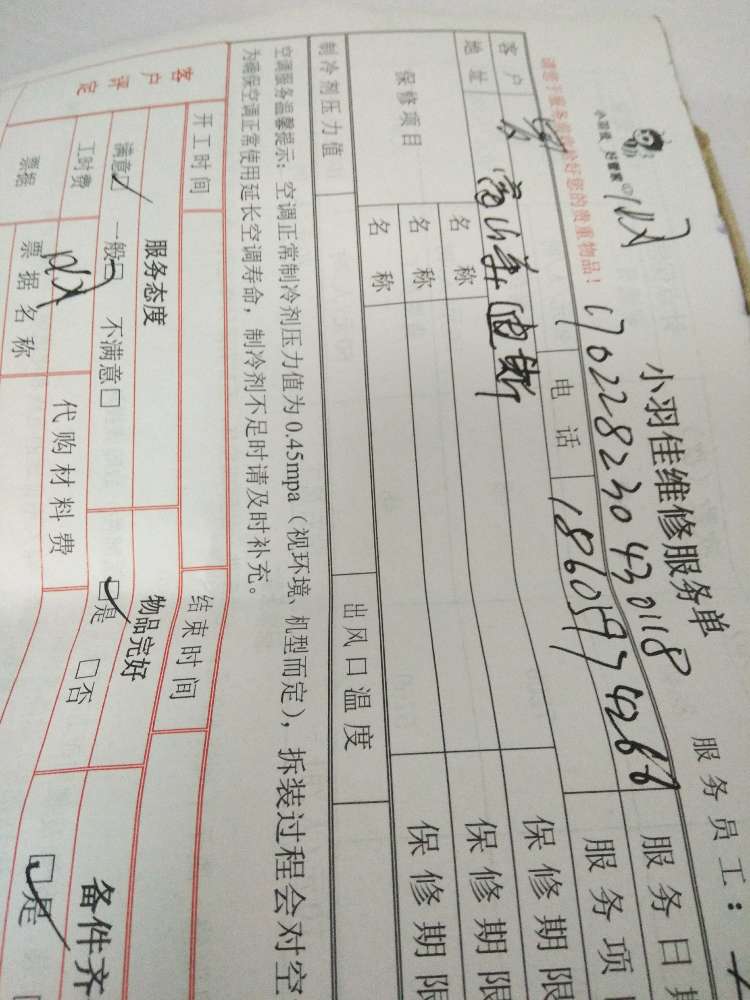 小羽佳 好管家
小羽佳维修服务单
服务员工：
170228230430118
服务日期
请您于服务前收拾好您的贵重物品！
客户
电话
服务项
地址
保修项目
名称
保修期限
名称
保修期限
名称
保修期限
制冷剂压力值
出风口温度
空调服务温馨提示：空调正常制冷剂压力值为0.45mpa（视环境、机型而定），拆装过程会对空
为确保空调正常使用延长空调寿命，制冷剂不足时请及时补充。
开工时间
结束时间
客户评定
服务态度
物品完好
备件齐
满意☑ 一般☑ 不满意□
☑是 □否
☑是
工时费
代购材料费
票据
票据名称